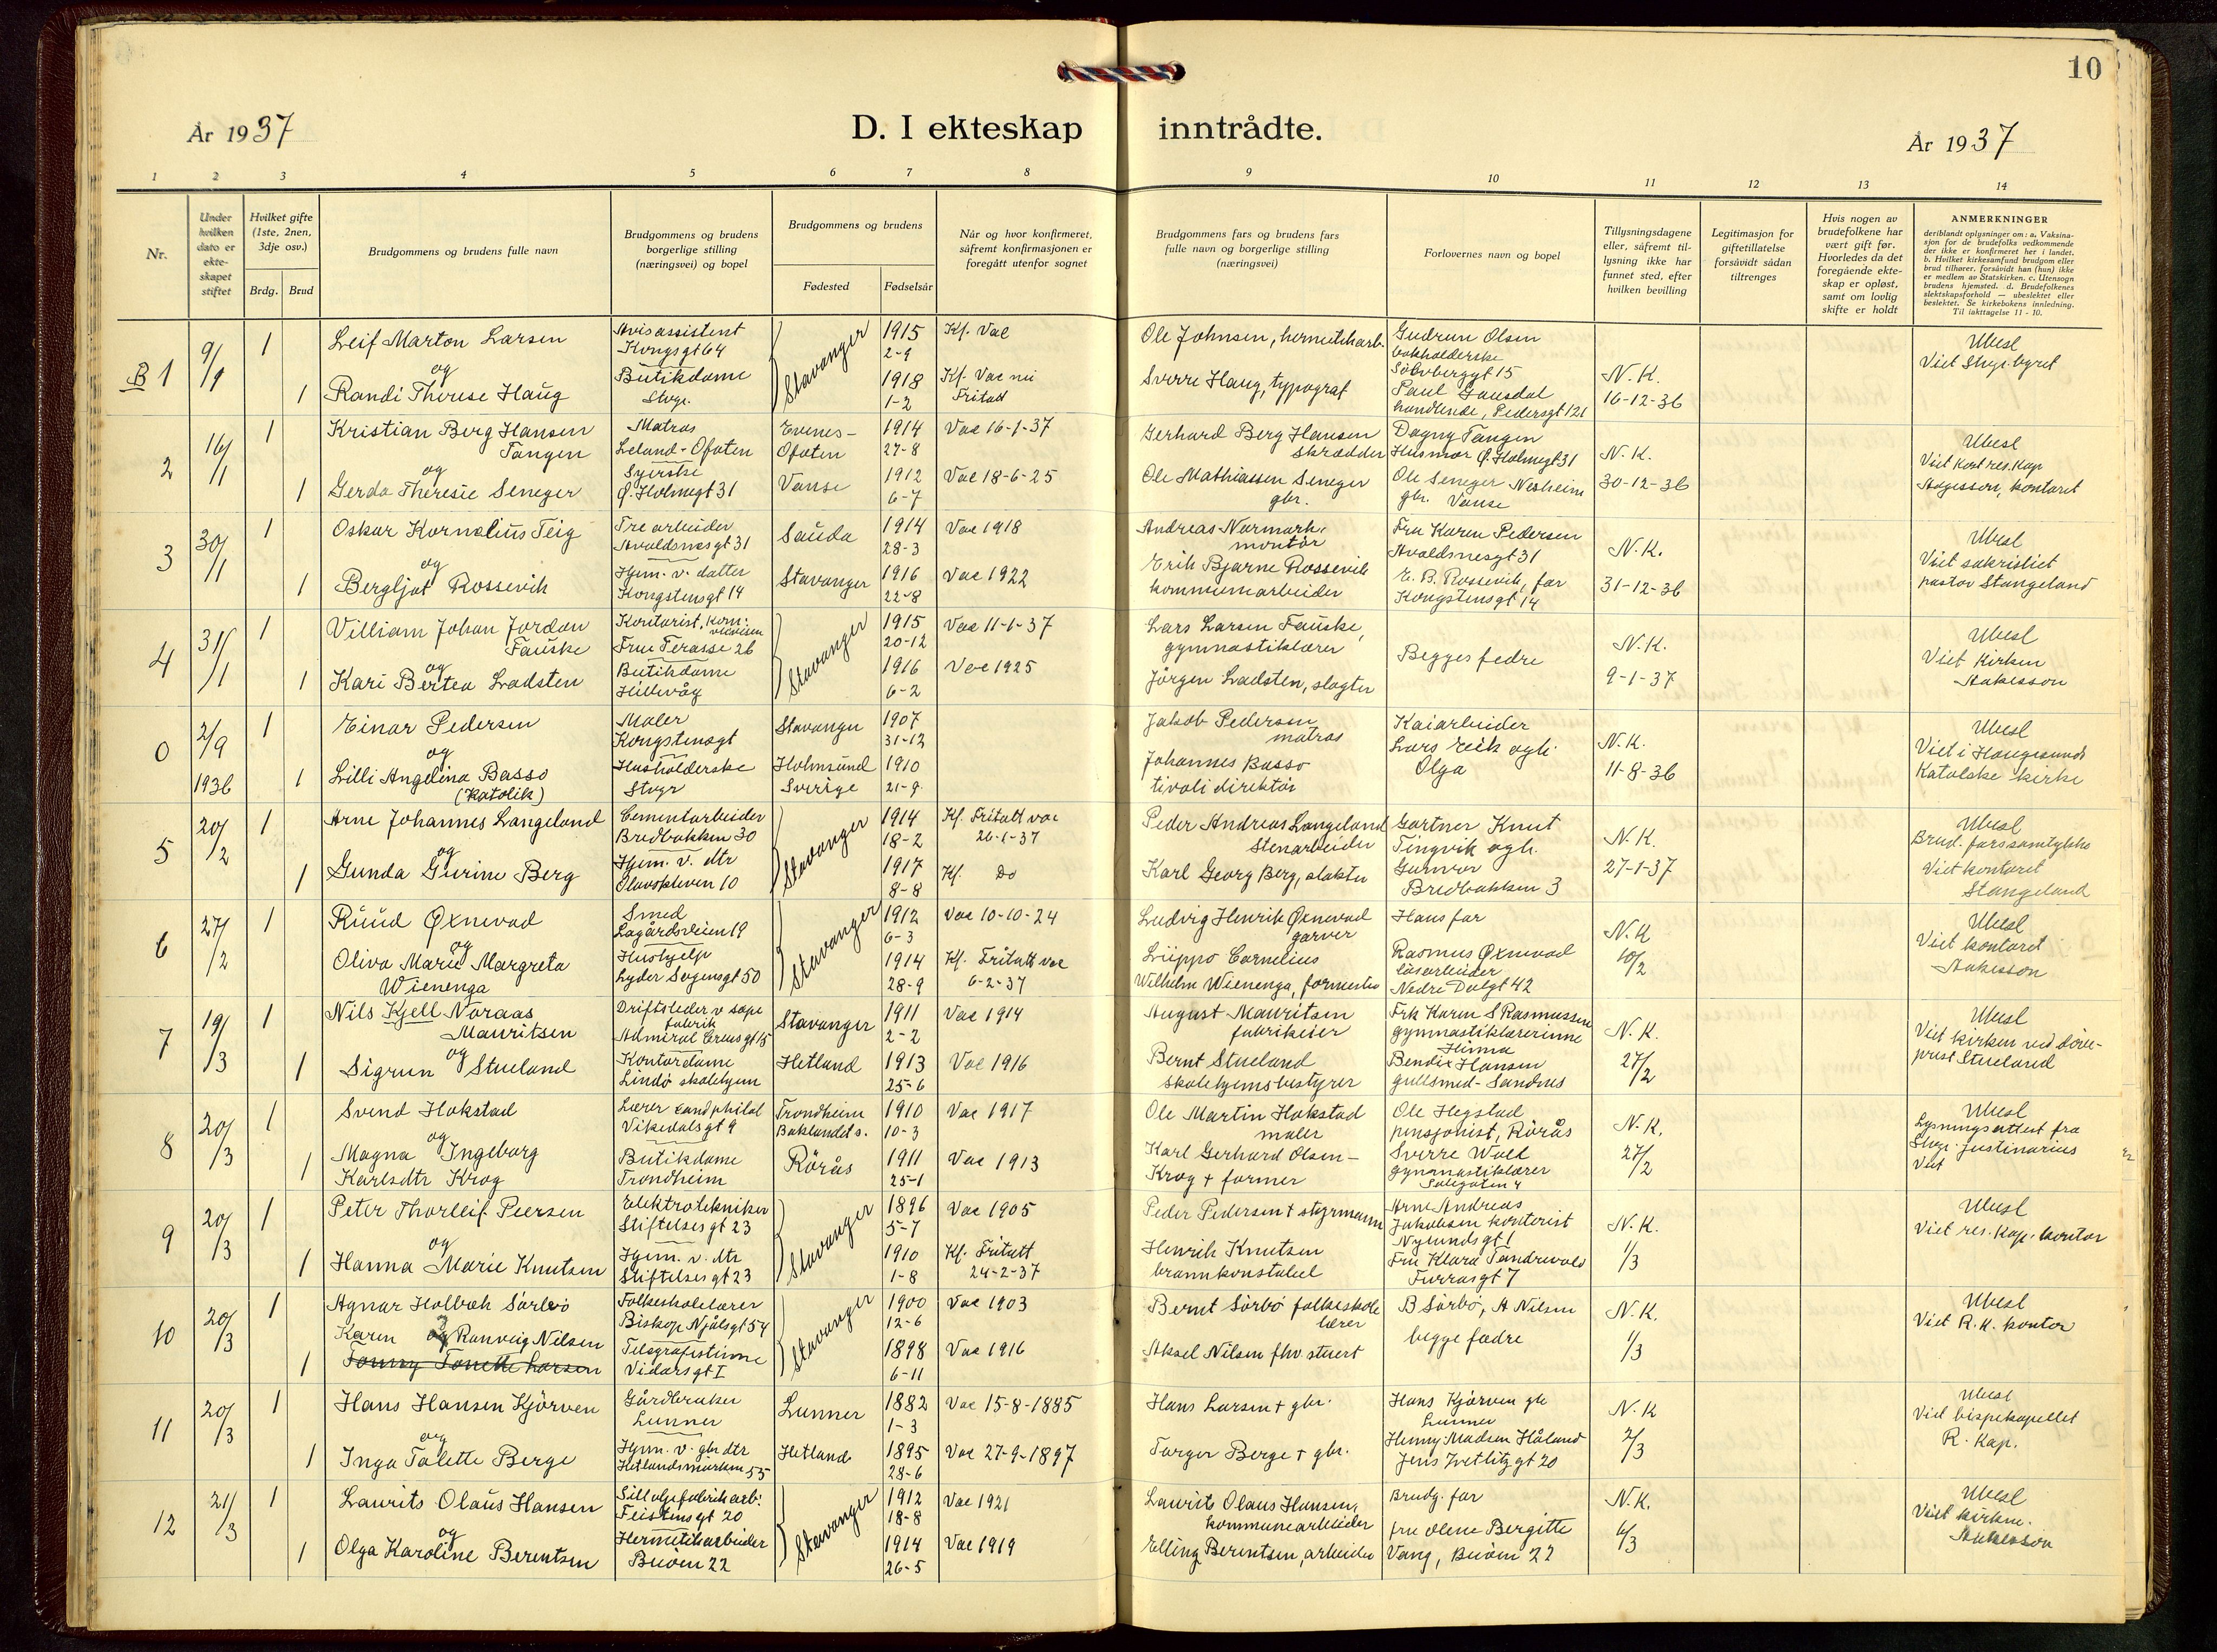 10
År 1937
D. I ekteskap inntrådte.
År 1937
1 2 3 4 5 6 7 8 9 10 11 12 13 14
Nr.
Under hvilken dato er ekteskapet stiftet
Hvilket gifte (1ste, 2nen, 3dje osv.)
Brdg. Brud
Brudgommens og brudens fulle navn
Brudgommens og brudens borgerlige stilling (næringsvei) og bopel
Brudgommens og brudens
Fødested Fødselsår
Når og hvor konfirmeret, såfremt konfirmasjonen er foregått utenfor sognet
Brudgommens fars og brudens fars fulle navn og borgerlige stilling (næringsvei)
Forlovernes navn og bopel
Tillysningsdagene eller, såfremt tillysning ikke har funnet sted, efter hvilken bevilling
Legitimasjon for giftetillatelse forsåvidt sådan tiltrenges
Hvis nogen av brudefolkene har vært gift før. Hvorledes da det foregående ekteskap er opløst, samt om lovlig skifte er holdt
ANMERKNINGER
deriblandt oplysninger om: a. Vaksinasjon for de brudefolks vedkommende der ikke er konfirmeret her i landet. b. Hvilket kirkesamfund brudgom eller brud tilhører, forsåvidt han (hun) ikke er medlem av Statskirken. c. Utensogn brudens hjemsted. d. Brudefolkenes slektskapsforhold — ubeslektet eller beslektet. Se kirkebokens innledning. Til iakttagelse 11 - 10.
B 1 9/1 1 Leif Marton Larsen Avisassistent Kongsgt 64 Stavanger 1915 2-9 Kf. Vac Ole Johnsen, hermetikarb. Gudrun Olsen bokholderske 15 Ubesl
og
1 Randi Therese Haug Butikdame Stvgr. 1918 1-2 Kf. Vac nei Fritatt Sverre Haug, typograf Paul Gausdal handlende, Pedersgt 121 N.K. 16-12-36 Viet Stvgr. byret
2 16/1 1 Kristian Berg Hansen Tangen Matros Leland-Ofoten Evenes-Ofoten 1914 27-8 Vac 16-1-37 Gerhard Berg Hansen skrædder Dagny Tangen Husmor Ø. Holmegt 31 N.K. Ubesl
og
1 Gerda Theresie Seneger Syerske Ø. Holmegt 31 Vanse 1912 6-7 Vac 18-6-25 Ole Mathiassen Seneger gbr. Ole Seneger Nesheim gbr. Vanse 30-12-36 Viet kont res. kap kontoret
3 30/1 1 Oskar Kornelius Teig Trearbeider Avaldsnesgt 31 Sauda 1914 28-3 Vac 1918 Andreas Normark montør Fru Karen Pedersen Avaldsnesgt 31 N.K. Ubesl
og
1 Bergljot Rossevik Hjem. v. datter Kongstensgt 14 Stavanger 1916 22-8 Vac 1922 Erik Bjarne Rossevik kommunearbeider E. B. Rossevik, far Kongstensgt 14 31-12-36 Viet sakristiet pastor Stangeland
4 31/1 1 Villiam Johan Jordan Fauske Kontorist, Frue Terasse 26 Stavanger 1915 20-12 Vac 11-1-37 Lars Larsen Fauske, gymnastiklærer Begges fedre N.K. Ubesl
og
1 Kari Bertea Ladsten Butikdame Hillevåg 1916 6-2 Vac 1925 Jørgen Ladsten, slagter 9-1-37 Viet Kirken Aakesson
0 2/9 1936 1 Einar Pedersen Maler Kongstensgt Stavanger 1907 31-12 Jakob Pedersen matros Kaiarbeider Lars Eeik ogh. Olga N.K. Ubesl
og
1 Lilli Angelina Basso (Katolik) Husholderske Stvgr Holmsund Sverige 1910 21-9 Johannes Basso tivolidirektør 11-8-36 Viet i Haugesunds Katolske kirke
5 20/2 1 Arne Johannes Langeland Cementarbeider Bredbakken 30 Stavanger 1914 18-2 Kf. Fritatt vac 26-1-37 Peder Andreas Langeland Stenarbeider Gartner Knut Tingvik ogh. N.K. Ubesl
og
1 Gunda Gurine Berg Hjem. v. dtr Olavskleven 10 1917 8-8 Kf. Do Karl Georg Berg, slakter Gunvor Bredbakken 3 27-1-37 Brud. fars samtykke Viet kontoret Stangeland
6 27/2 1 Ruud Øxnevad Smed Lagårdsveien 19 Stavanger 1912 6-3 Vac 10-10-24 Ludvig Henrik Øxnevad garver Hans far N.K. Ubesl
og
Oliva Marie Margreta Wienenga Hushjelp Lyder Sagensgt 50 1914 28-9 Kf. Fritatt vac 6-2-37 Lüppo Cornelius Wilhelm Wienenga, Rasmus Øxnevad Nedre Dalgt 42 10/2 Viet kontoret Aakesson
7 19/3 1 Nils Kjell Noraas Mauritsen Driftsleder v såpe fabrik Admiral Cruusgt 15 Stavanger 1911 2-2 Vac 1914 August Mauritsen fabrikeier Frk Karen S Rasmussen gymnastiklærerinne Hinna N.K. Ubesl
og
1 Sigrun Stueland Kontordame Lindø skolehjem Hetland 1913 25-6 Vac 1916 Bernt Stueland skolehjemsbestyrer Bendix Hansen gullsmed-Sandnes 27/2 Viet kirken ved prest Stueland
8 20/3 1 Svend Hokstad Lærer cand philol Vikedalsgt 9 Trondheim Baklandet s. 1910 10-3 Vac 1917 Ole Martin Hokstad maler Ole Hegstad pensjonist, Rörås N.K. Ubesl
og
1 Magna Ingeborg Karlsdtr Krog Butikdame Trondheim Rörås 1911 25-1 Vac 1913 Karl Gerhard Olsen-Krog + former Sverre Wold gymnastiklærer 27/2 Lysningsattest fra Stvgr. justinarius Viet
9 20/3 1 Peter Thorleif Peersen Elektrotekniker Stiftelsesgt 23 Stavanger 1896 5-7 Vac 1905 Peder Pedersen + styrmann Arne Andreas Jakobsen kontorist Nylundsgt 1 N.K. Ubesl
og
1 Hanna Marie Knutsen Hjem. v. dtr Stiftelsesgt 23 1910 1-8 Kf. Fritatt 24-2-37 Henrik Knutsen brannkonstabel Fru Klara Tandrevold Furrasgt 7 1/3 Viet res. kap. kontor
10 20/3 1 Agnar Holbæk Sørbø Folkeskolelærer Biskop Njålsgt 54 Stavanger 1900 12-6 Vac 1903 Bernt Sörbö folkeskole lærer B Sörbö, A Nilsen begge fædre N.K. Ubesl
Karen og Ranveig Nilsen
1 Tomny Tonette Larsen Telegrafistinne Vidarsgt I 1898 6-11 Vac 1916 Aksel Nilsen fhv stuert 1/3 Viet R.K. kontor
11 20/3 1 Hans Hansen Kjörven Gårdbruker Lunner Lunner 1882 1-3 Vac 15-8-1885 Hans Larsen + gbr. Hans Kjörven gbr Lunner N.K. Ubesl
og
1 Inga Talette Berge Hjem. v. gbr dtr Hetlandsmarken 55 Hetland 1895 28-6 Vac 27-9-1897 Targer Berge + gbr. Henny Madsen Håland Jens Zetlitz gt 20 2/3 Viet bispekapellet R. Kap.
12 21/3 1 Laurits Olaus Hansen Silloljefabrikarb. Feistensgt 20 Stavanger 1912 18-8 Vac 1921 Laurits Olaus Hansen, kommunearbeider Brudg. far N.K. Ubesl
og
1 Olga Karoline Berentsen Hermetikarbeider Buöen 22 1914 26-5 Vac 1919 Elling Berentsen, arbeider fru Olene Bergitte Vang, Buöen 22 6/3 Viet kirken. Aakesson